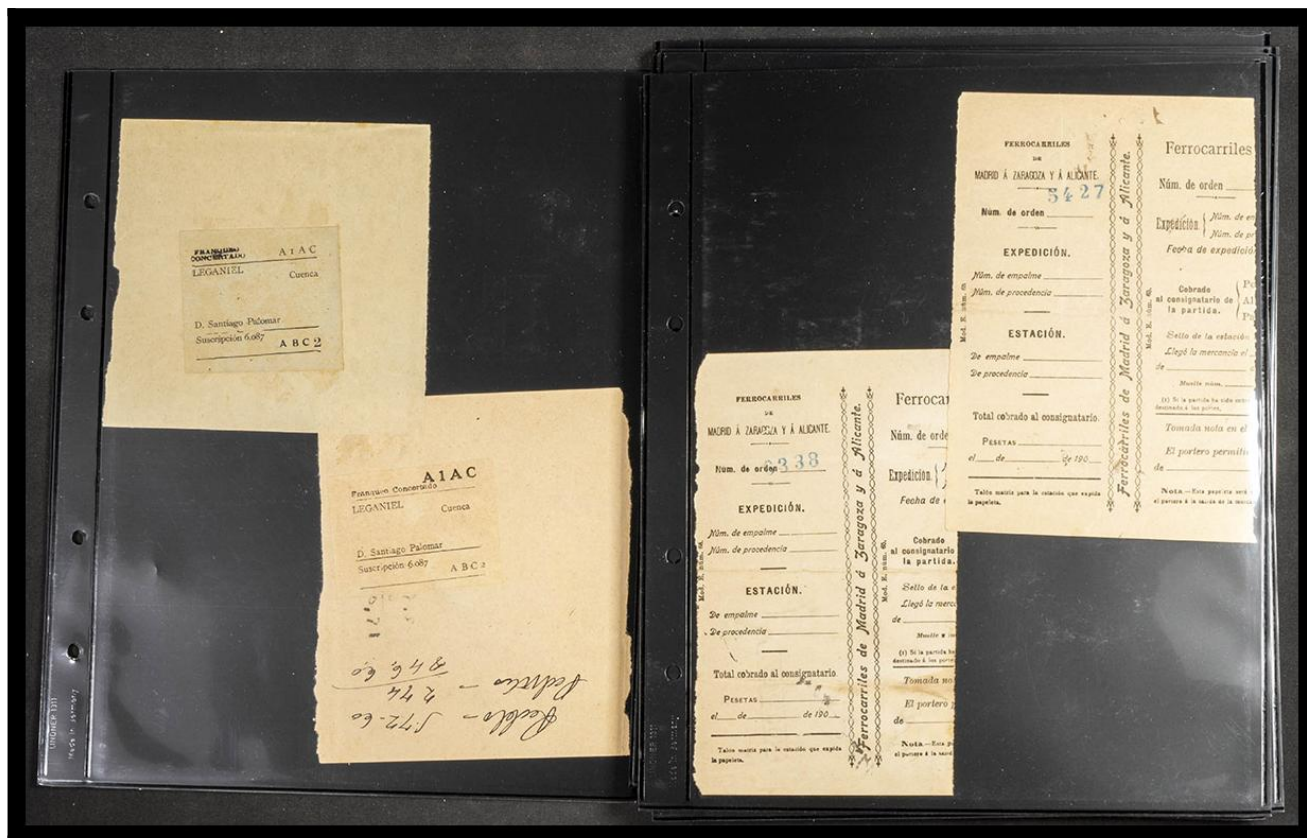 FRANQUEO
CONCERTADO
A1AC
LEGANIEL Cuenca
D. Santiago Palomar
Suscripción 6.087 ABC2
A1AC
Franqueo Concertado
LEGANIEL Cuenca
D. Santiago Palomar
Suscripción 6.087 ABC2
572-60
274
846,60
UNGNER 1311
Made in Germany
FERROCARRILES
DE
MADRID Á ZARAGOZA Y Á ALICANTE.
338
Núm. de orden
EXPEDICIÓN.
Núm. de empalme
Núm. de procedencia
ESTACIÓN.
De empalme
De procedencia
Total cobrado al consignatario
PESETAS
el de de 190
Talón matriz para la estación que expida
la papeleta.
Mod. E. núm. 65.
Ferrocarriles de Madrid á Zaragoza y á Alicante.
Mod. E. núm. 65.
Núm. de orde
Expedición.
Fecha de
Cobrado
al consignatario
la partida.
Sello de la
Llegó la merc
de
Muelle
(1) Si la partida
Tomada no
El portero
de
Nota.—Esta
FERROCARRILES
DE
MADRID Á ZARAGOZA Y Á ALICANTE.
5427
Núm. de orden
EXPEDICIÓN.
Núm. de empalme
Núm. de procedencia
ESTACIÓN.
De empalme
De procedencia
Total cobrado al consignatario.
PESETAS
el de de 190
Talón matriz para la estación que expida
la papeleta.
Mod. E. núm. 65.
Ferrocarriles de Madrid á Zaragoza y á Alicante.
Mod. E. núm. 65.
Ferrocarriles
Núm. de orden
Expedición.
Núm. de
Núm. de
Fecha de expedició
Cobrado
al consignatario de
la partida.
Sello de la estación
Llegó la mercancía el
de
Muelle núm.
(1) Si la partida ha sido
Tomada nota en el
El portero permitir
de
Nota.—Esta papeleta será
el portero á la salida de la